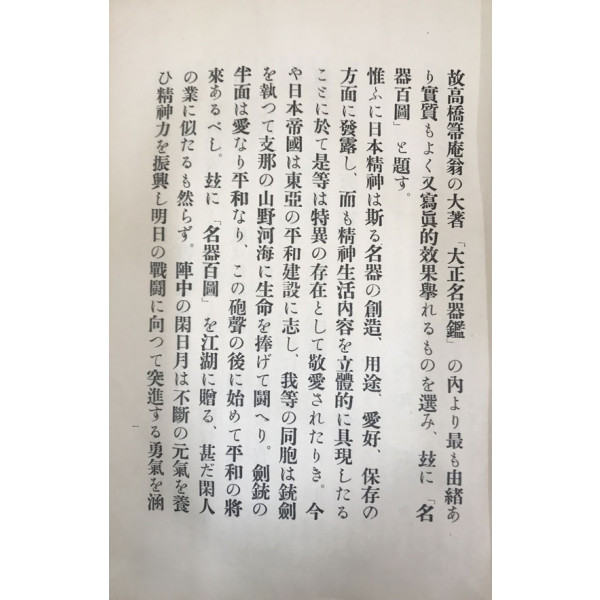 故高橋箒庵翁の大著「大正名器鑑」の內より最も由緒あ
り實質もよく又寫眞的效果擧れるものを選み、玆に「名
器百圖」と題す。
惟ふに日本精神は斯る名器の創造、用途、愛好、保存の
方面に發露し、而も精神生活內容を立體的に具現したる
ことに於て是等は特異の存在として敬愛されたりき。今
や日本帝國は東亞の平和建設に志し、我等の同胞は銃劍
を執つて支那の山野河海に生命を捧げて鬪へり。劍銃の
半面は愛なり平和なり、この砲聲の後に始めて平和の將
來あるべし。玆に「名器百圖」を江湖に贈る、甚だ閑人
の業に似たるも然らず。陣中の閑日月は不斷の元氣を養
ひ精神力を振興し明日の戰鬪に向つて突進する勇氣を涵